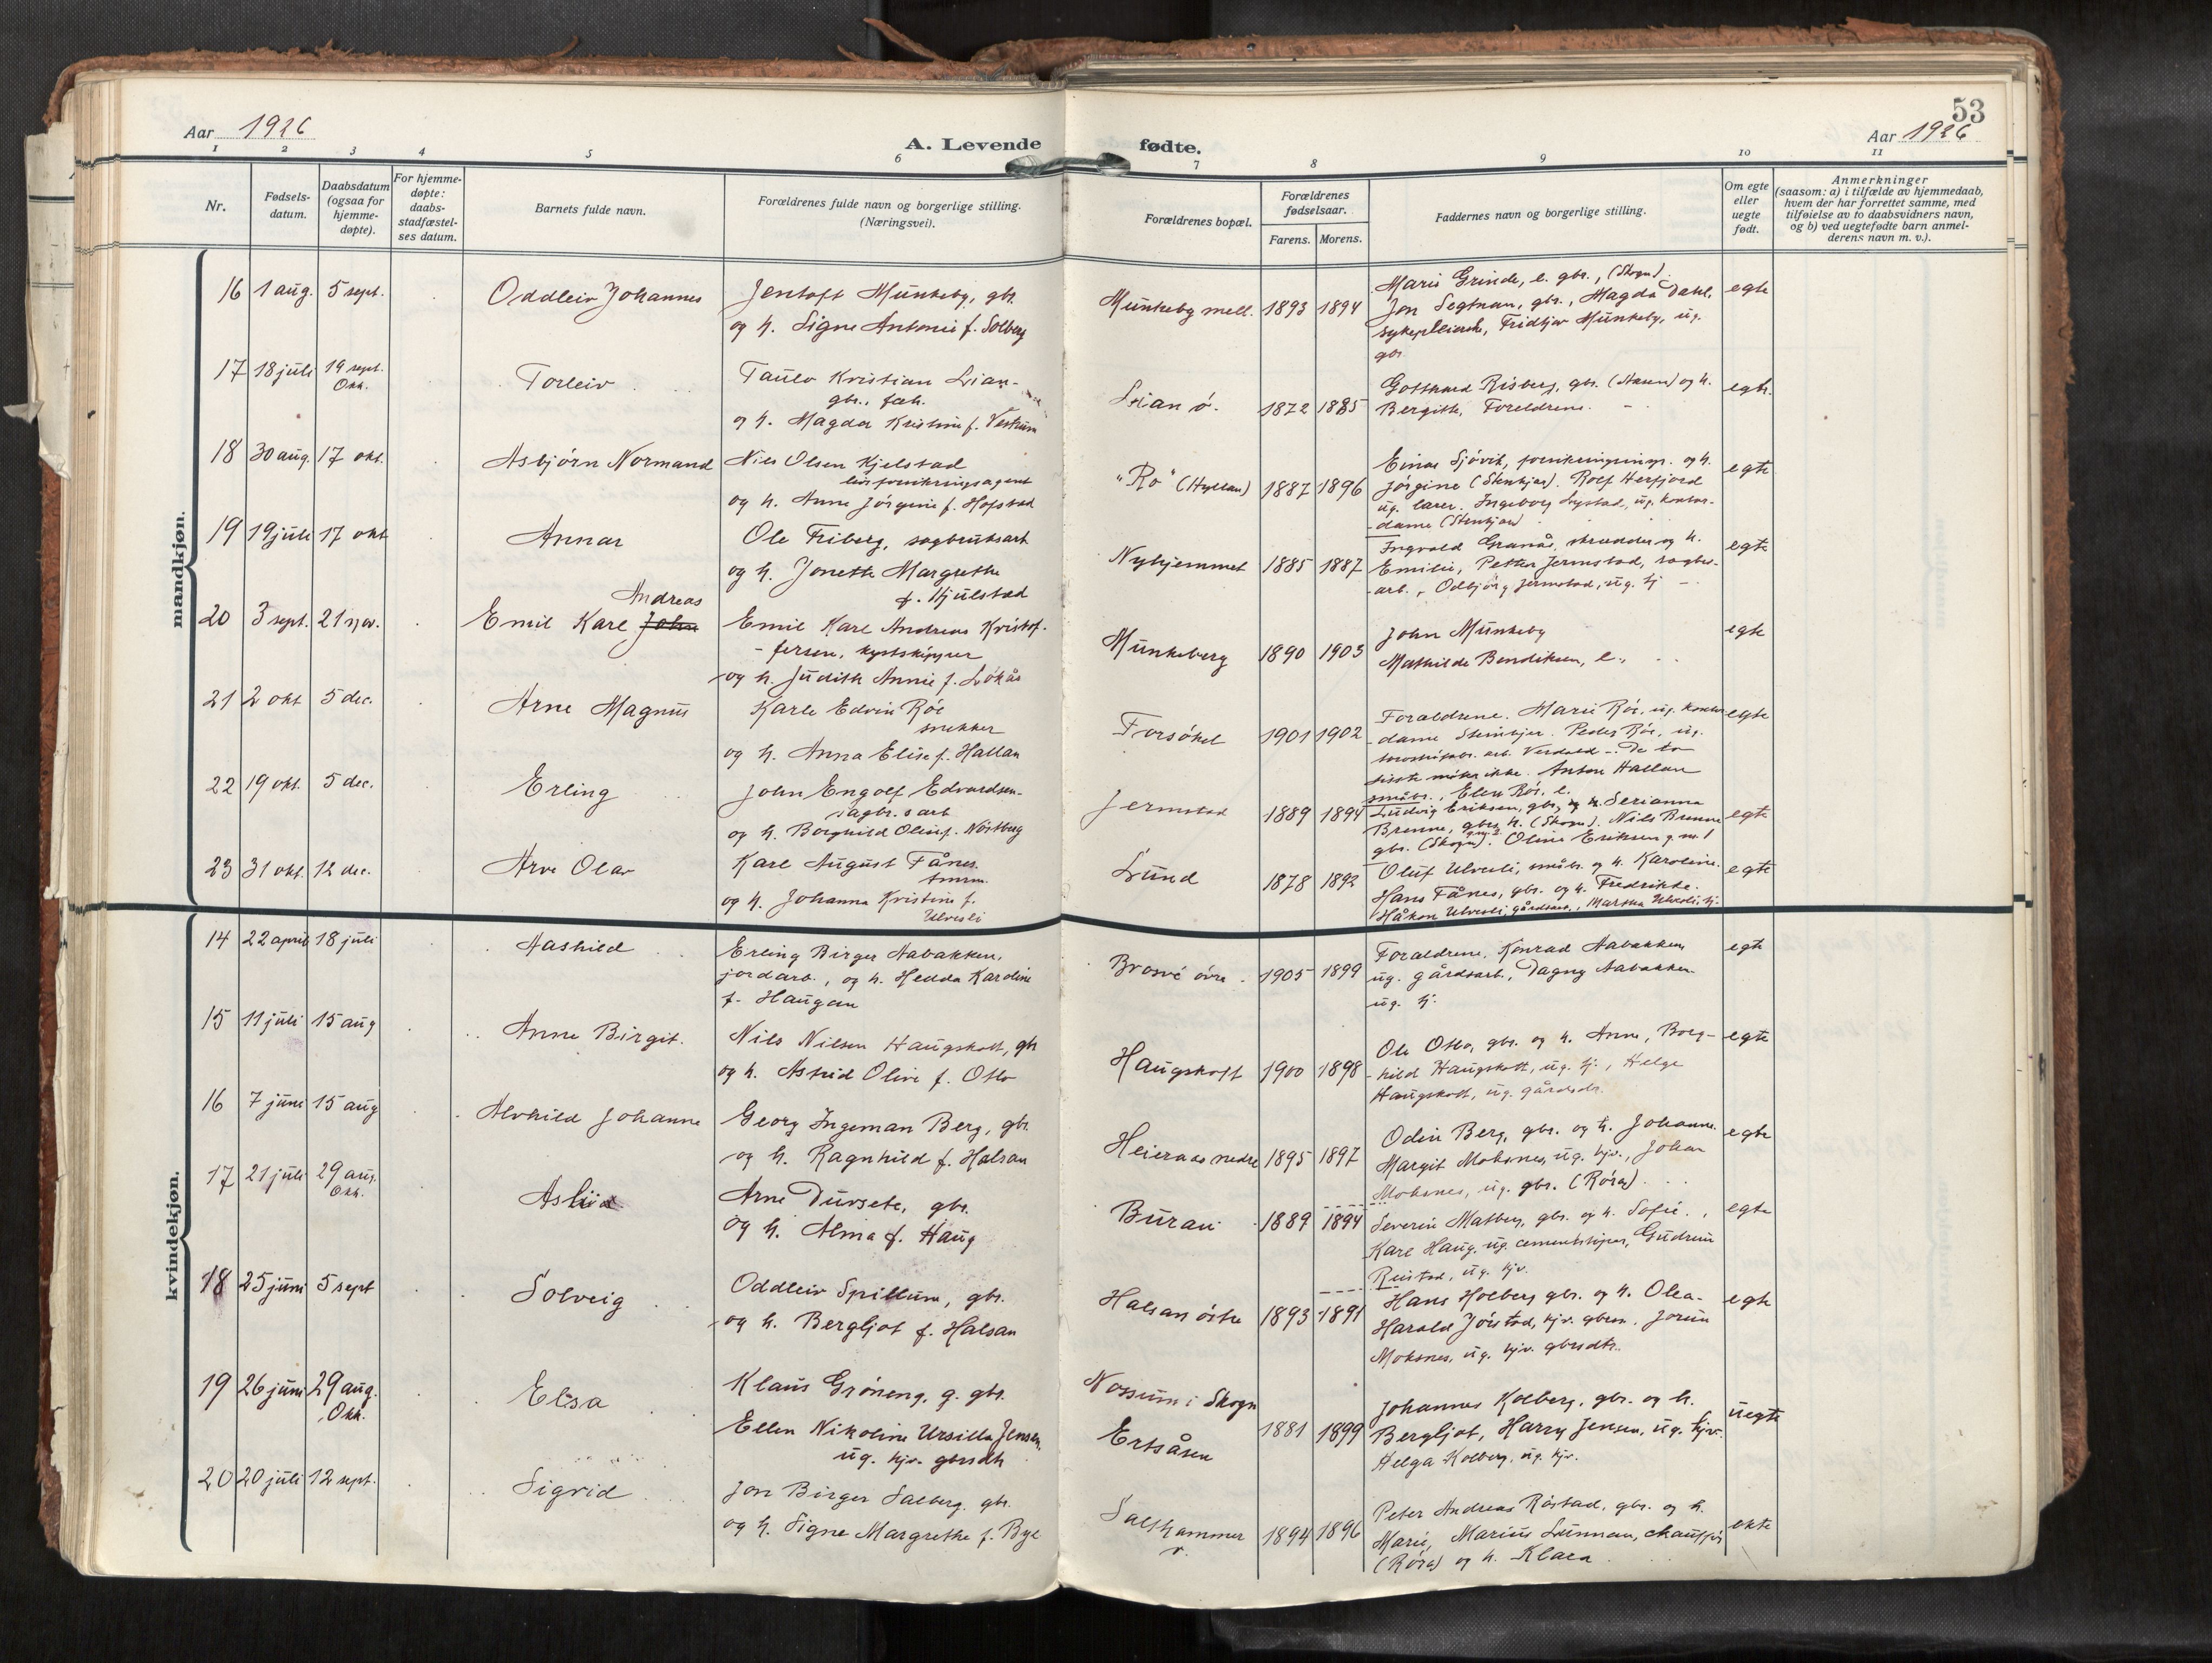 53
Aar 1926
A. Levende fødte.
Aar 1926
1 2 3 4 5 6 7 8 9 10 11
Nr.
Fødsels-
datum.
Daabsdatum
(ogsaa for
hjemme-
døpte).
For hjemme-
døpte:
daabs-
stadfæstel-
ses datum.
Barnets fulde navn.
Forældrenes fulde navn og borgerlige stilling.
(Næringsvei).
Forældrenes bopæl.
Forældrenes
fødselsaar.
Farens. Morens.
Faddernes navn og borgerlige stilling.
Om egte
eller
uegte
født.
Anmerkninger
(saasom: a) i tilfælde av hjemmedaab,
hvem der har forrettet samme, med
tilføielse av to daabsvidners navn,
og b) ved uegtefødte barn anmel-
derens navn m. v.).
mandkjøn.
16 1 aug. 5 sept. Oddleiv Johannes
Jentoft Munkeby, gbr.
og h. Signe Antonie f. Solberg
Munkeby mell. 1893 1894
Marie Grinde, e. gbr., (Skogn).
Jon Segtnan, gbr., Magda Dahl,
sykepleierske, Fridtjov Munkeby, ug.
gbr.
egte
17 18 juli 19 sept.
Okk.
Torleiv
Paulo Kristian Lian
gbr., fæh.
og h. Magda Kristine f.
Lian ø. 1872 1885
Gotthard Risberg, gbr. (Åsen) og h.
Bergitte, Foreldrene.
egte
18 30 aug. 17 okt. Asbjørn Normand
Nils Olsen Kjelstad
livsforsikringsagent
og h. Anne Jørgine f. Hofstad
"Ro" (Hyllan) 1887 1896
Einar Sjøvik, forsikringsinsp. og h.
Jørgine (Stenkjær). Rolf Herfjord
ug. lærer. Ingeborg Lystad, ug. kontor-
dame (Stenkjær)
egte
19 19 juli 17 okt Annar
Ole Friberg, sagbruksarb
og h. Jonette Margrethe
f. Hjulstad
Nyhjemmet 1885 1887
Ingvald Granås, skrædder og h.
Emilie, Petter Jermstad, sagbr.-
arb., Odbjørg Jermstad, ug. hj
egte
20 3 sept. 21 nov. Emil Karl John Andreas
Emil Karl Andreas Kristof-
fersen, kystskipper
og h. Judith Annie f. Løkås
Munkeberg 1890 1903
John Munkeby
Mathilde Bendiksen, e.,
egte
21 2 okt 5 dec. Arne Magnus
Karle Edvin Røe
snekker
og h. Anna Elise f. Hallan
Forsøket 1901 1902
Foreldrene. Marie Røe, ug. kontor-
dame Steinkjer. Peder Røe, ug.
arb. Verdal. De to
siste møter ikke. Anton Hallan
småbr., Elen Røe, e.
egte
22 19 okt. 5 dec. Erling
John Engolf Edvardsen
sagbr.s arb
og h. Borghild Oline f. Nøstberg
Jermstad 1889 1894
Ludvig Eriksen, gbr. og h. Serianna
Brenne, gbrs h. (Skogn). Nils Brenne
gbr. (Skogn). Oline Eriksen g.m.
egte
23 31 okt. 12 dec. Arve Olav
Karl August Fånes
tømm.
og h. Johanna Kristine f.
Ulvesli
Lund 1878 1892
Oluf Ulvesli, småbr. og h. Karoline.
Hans Fånes, gbr. og h. Fredrikke.
Håkon Ulvesli, gårdsarb., Martha Ulvesli, hj.
egte
kvindekjøn.
14 22 april 18 juli Aashild
Erling Birger Aabakken,
jordarb., og h. Hedda Karoline
f. Haugan
Brosve øvre 1905 1899
Foreldrene, Konrad Aabakken
ug. gårdsarb., Dagny Aabakken
ug. hj.
egte
15 11 juli 15 aug Anne Birgit.
Nils Nilsen Haugskott, gbr
og h. Astrid Olive f. Otlo
Haugskott 1900 1898
Ole Otlo, gbr. og h. Anne, Borg-
hild Haugskott, ug. hj., Helge
Haugskott, ug. gårdsdr.
egte
16 7 juni 15 aug Alvhild Johanne
Georg Ingeman Berg, gbr.
og h. Ragnhild f. Halsan
Heieraas nedre 1895 1897
Odin Berg, gbr. og h. Johanne.
Margit Moksnes, ug. hjv., Johan
Moksnes, ug. gbr. (Røra)
egte
17 21 juli 29 aug.
Okk.
Arne Dursete, gbr.
og h. Alma f. Haug
Buran 1889 1894
Severin Matberg, gbr. og h. Sofie.,
Karl Haug, ug. cementstøper, Gudrun
Rustad, ug. hjv.
egte
18 25 juni 5 sept Solveig
Oddleiv Spillum, gbr.
og h. Bergljot f. Halsan
Halsan østre 1893 1891
Hans Holberg gbr. og h. Olea.
Harald Jørstad, hjv. gbrsøn. Jorun
Moksnes, ug. hjv. gbrsdtr.
egte
19 26 juni 29 aug.
Okk.
Elsa
Klaus Grøneng, g. gbr.
Ellen Nikoline Ursilla Jensen,
ug. hjv. gbrsdtr
Nossum i Skogn
Ertsåsen
1881 1899
Johannes Kolberg, gbr. og h.
Bergljot, Harry Jensen, ug. hjv.
Helga Kolberg, ug. hjv.
uegte
20 20 juli 12 sept. Sigrid
Jon Birger Salberg, gbr.
og h. Signe Margrethe f. Bye
Salthammer
v.
1894 1896
Peter Andreas Røstad, gbr. og h.
Marie, Marius Lunnan, chauffør
(Røra) og h. Klara
ekte